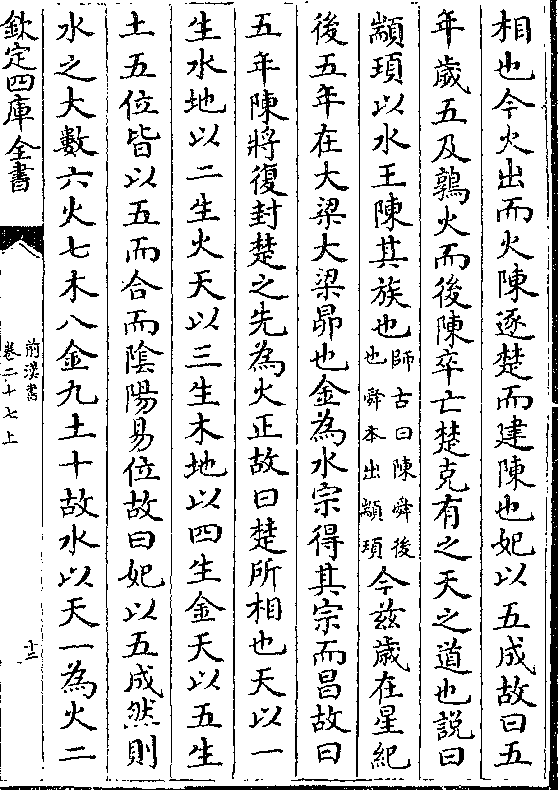 相也今火出而火陳逐楚而建陳也妃以五成故曰五
年歲五及鶉火而後陳卒亡楚克有之天之道也説曰
顓頊以水王陳其族也師古曰陳舜後也舜本出顓頊今兹歳在星紀
後五年在大梁大梁昴也金為水宗得其宗而昌故曰
五年陳將復封楚之先為火正故曰楚所相也天以一
生水地以二生火天以三生木地以四生金天以五生
土五位皆以五而合而隂陽易位故曰妃以五成然則
水之大數六火七木八金九土十故水以天一為火二
欽定四庫全書
前漢書
卷二十七上
十三